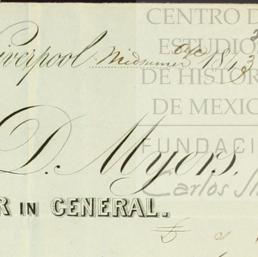 Liverpool Midsumer 1843
D. Myers.
R IN GENERAL.
£ s
CENTRO DE
ESTUDIO
DE HISTOR
DE MEXIC
FUNDACI
Carlos Sli